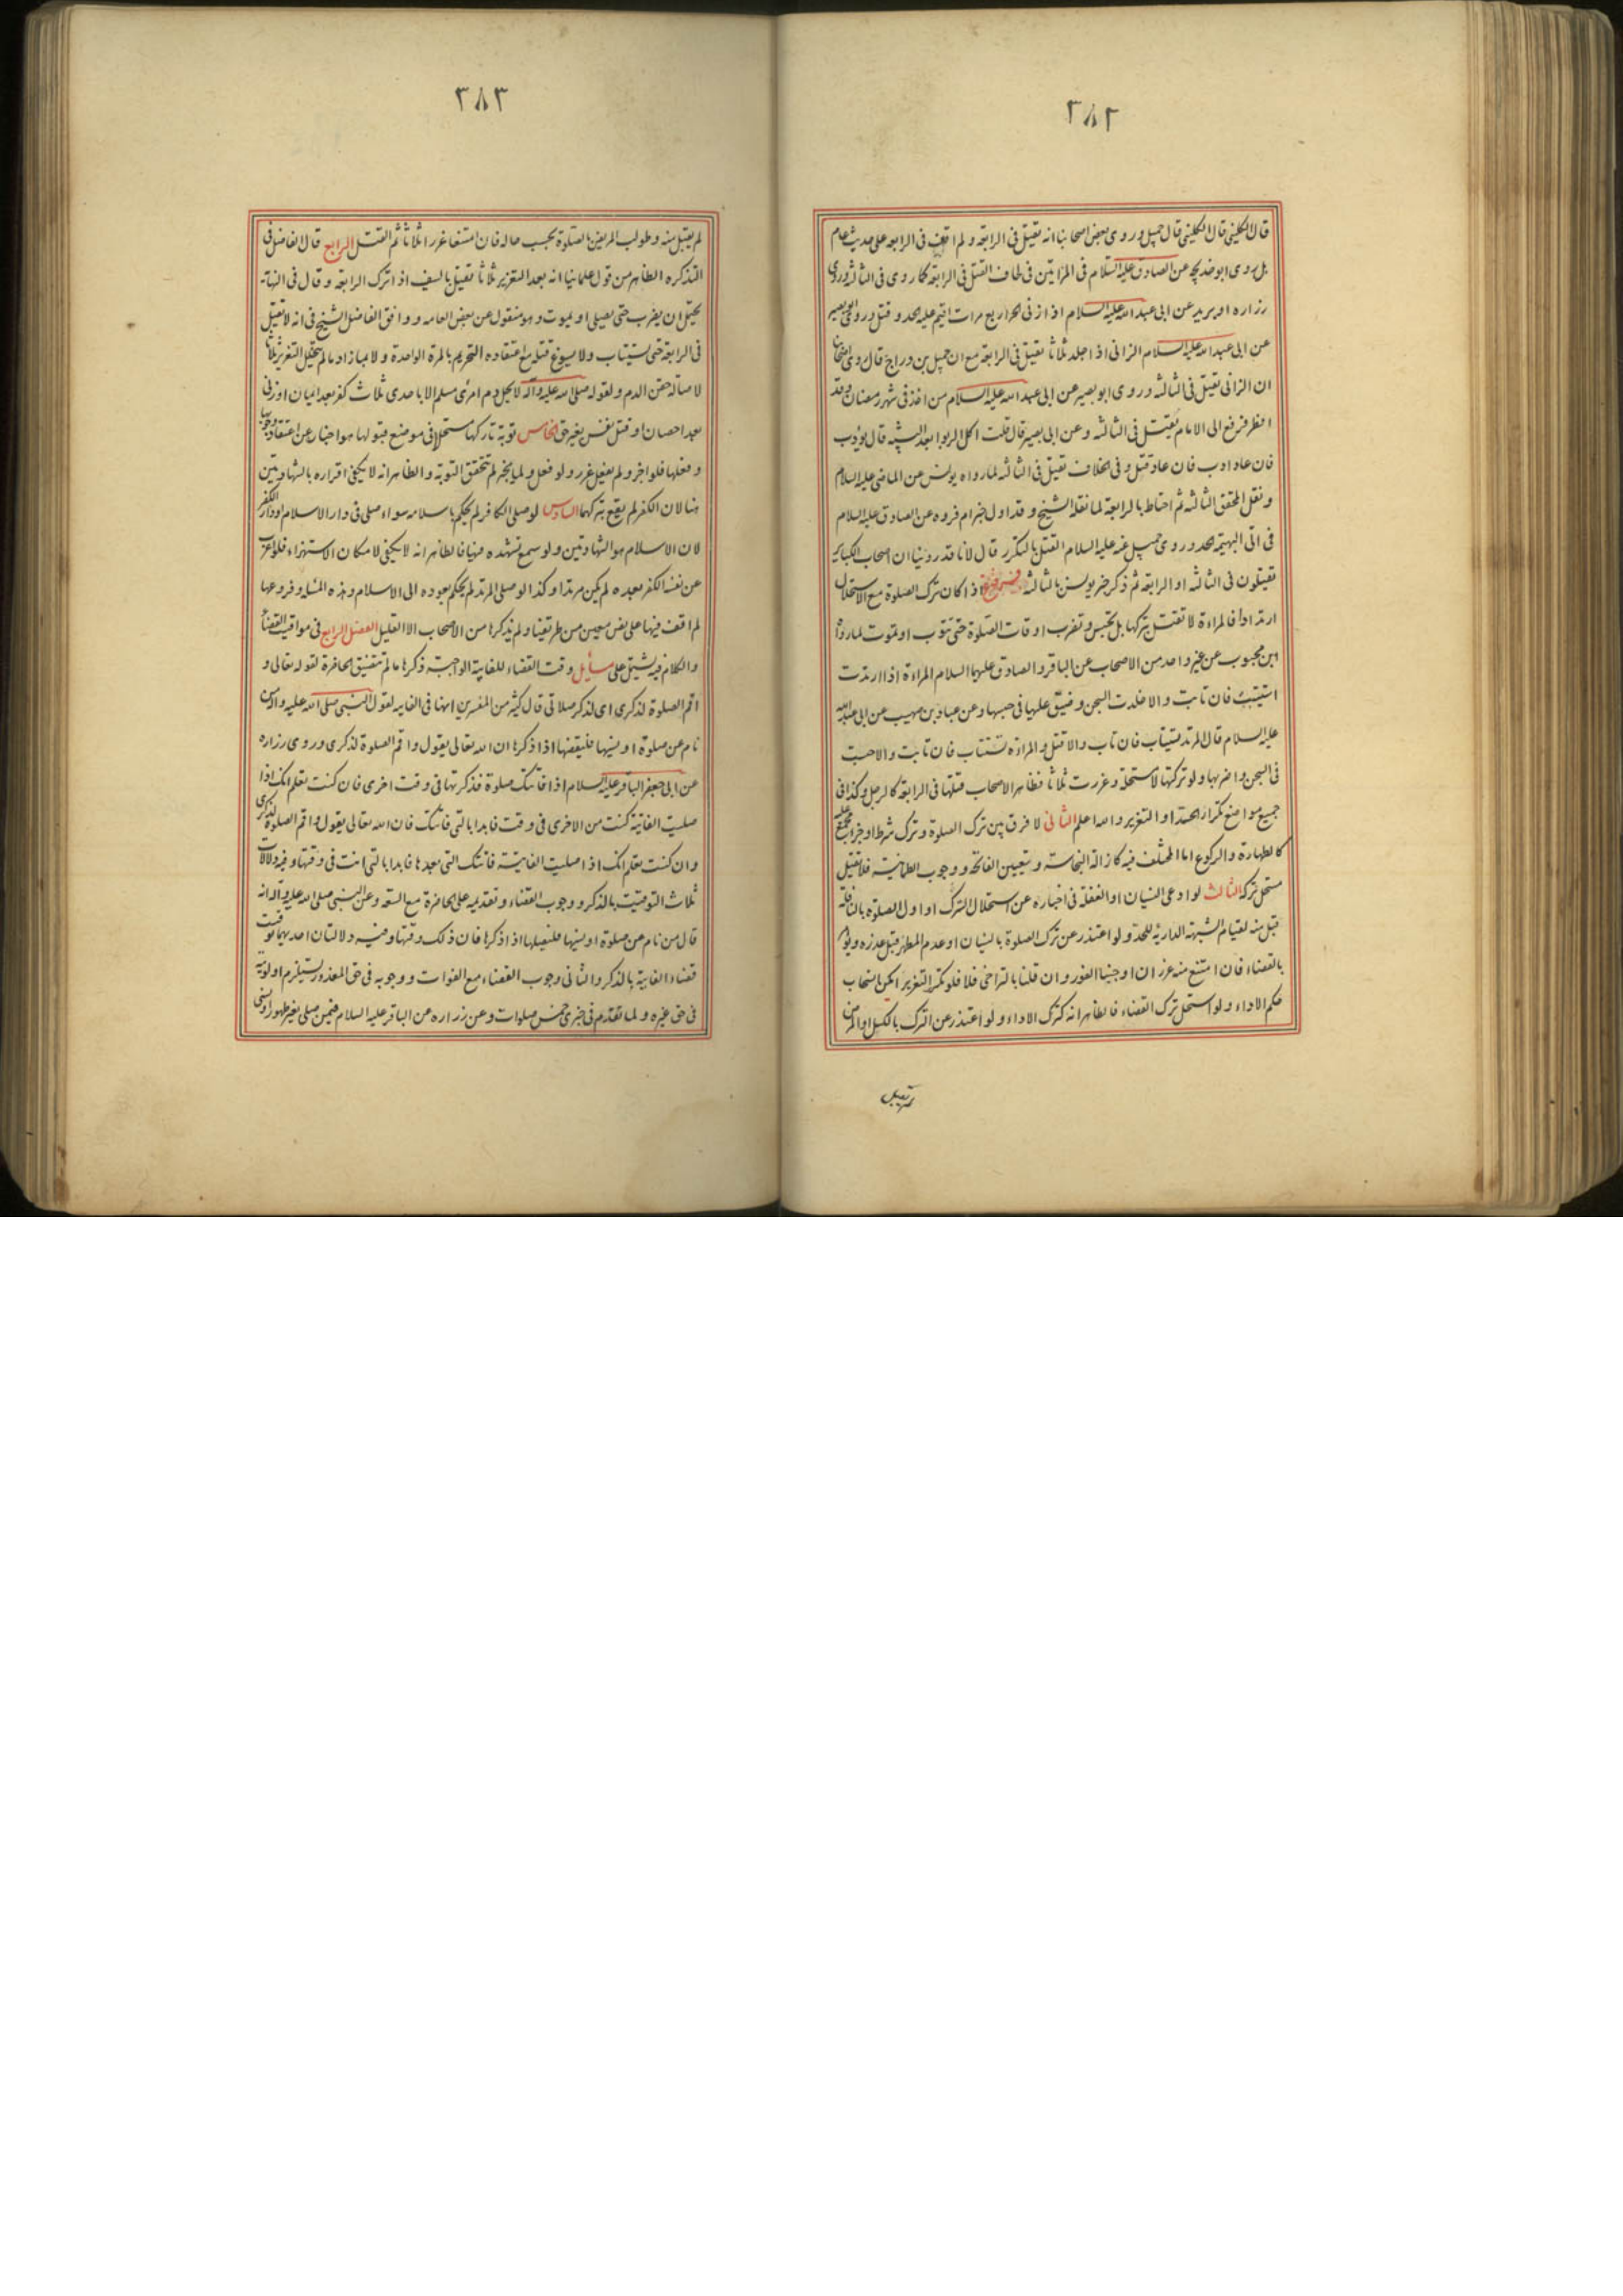 ٣٨٢
قال الكليني قال الكليني قال جميل وروى بعض اصحابنا انه يقتل في الرابعة ولم اقف في الرابعة على حديث عام
بل روى ابو خديجة عن الصادق عليه السلام في المرأتين في لحاف القتل في الرابعة كما روى في الثالثة وروى
زراره او بريد عن ابى عبد الله عليه السلام اذا زنى الحر اربع مرات اقيم عليه الحد وقتل وروى ابو بصير
عن ابى عبد الله عليه السلام الزانى اذا جلد ثلاثا يقتل في الرابعة مع ان جميل بن دراج قال روى اصحابنا
ان الزانى يقتل في الثالثه وروى ابو بصير عن ابى عبد الله عليه السلام من اخذ في شهر رمضان وقد
افطر فرفع الى الامام يقتل في الثالثه وعن ابى بصير قال قلت اكل الربوا بعد البينه قال يؤدب
فان عاد ادب فان عاد قتل وفى الخلاف يقتل في الثالثه لما رواه يونس عن الماضى عليه السلام
ونقل المحقق الثالثه ثم احتاط بالرابعة لما نقله الشيخ وقد اول خبر ام فروه عن الصادق عليه السلام
في اتى البهيمة الحد وروى جميل عنه عليه السلام القتل بالتكرر قال لانا قد روينا ان اصحاب الكباير
يقتلون في الثالثه او الرابعه ثم ذكر خبر يونس بالثالثه اذا كان ترك الصلوة مع الاستحلال
ارتدادا فالمراءة لا تقتل بتركها بل تحبس وتضرب اوقات الصلوة حتى تتوب او تموت لما رواه
ابن محبوب عن غير واحد من الاصحاب عن الباقر والصادق عليهما السلام المراءة اذا ارتدت
استتيبت فان تابت والا خلدت السجن وضيق عليها في حبسها وعن عباد بن صهيب عن ابى عبد الله
عليه السلام قال المرتد يستتاب فان تاب والا قتل والمراة تستتاب فان تابت والا حبست
في السجن واضر بها ولو تركتها لا مستحلة وعزرت ثلاثا فظاهر الاصحاب قتلها في الرابعة كالرجل وكذا في
جميع مواضع تكرار الحد او التعزير والله اعلم الثانى لا فرق بين ترك الصلوة وترك شرط او جزء مجمع عليه
كالطهارة والركوع اما المختلف فيه كازالة النجاسة وتعيين الفاتحة ووجوب الطمانينة فلا يقتل
مستحل تركه الثالث لو ادعى النسيان او الغفلة في اخباره عن استحلال الترك او اول الصلوة بالنافلة
قبل منه لقيام الشبهة الدارئة للحد ولو اعتذر عن ترك الصلوة بالنسيان او عدم المطهر قبل عذره ويؤمر
بالقضاء فان امتنع منه عزر ان اوجبنا الفور وان قلنا بالتراخى فلا فلو تكرر التعزير امكن انسحاب
حكم الاداء ولو استحل ترك القضاء فالظاهر انه كترك الاداء ولو اعتذر عن الترك بالكسل او المرض
لم يقبل
٣٨٣
لم يقبل منه وطولب المريض بالصلوة بحسب حاله فان امتنعا عزرا ثلاثا ثم القتل الرابع قال الفاضل في
التذكره الظاهر من قول علمائنا انه بعد التعزير ثلاثا يقتل بالسيف اذا ترك الرابعة وقال في النهاية
يحتمل ان يضرب حتى يصلى او يموت وهو منقول عن بعض العامه ووافق الفاضل الشيخ في انه لا يقتل
في الرابعة حتى يستتاب ولا يسوغ قتله مع اعتقاده التحريم بالمرة الواحدة ولا بما زاد ما لم يتخلل التعزير ثلاثا
لاصالة حقن الدم ولقوله صلى الله عليه وآله لا يحل دم امرئ مسلم الا باحدى ثلاث كفر بعد ايمان او زنى
بعد احصان او قتل نفس بغير حق الخامس توبة تاركها مستحلا في موضع قبولها هو اخبار عن اعتقاد وجوبها
وفعلها فلو اخبر ولم يفعل عزر ولو فعل ولما يخبر لم تتحقق التوبة والظاهر انه لا يكفى اقراره بالشهادتين
هنا لان الكفر لم يقع بتركهما السادس لو صلى الكافر لم يحكم باسلامه سواء صلى في دار الاسلام او دار الكفر
لان الاسلام هو الشهادتين ولو سمع تشهده فيها فالظاهر انه لا يكفى لامكان الاستهزاء فلو اعرب
عن نفسه الكفر بعده لم يكن مرتدا وكذا لو صلى المرتد لم يحكم بعوده الى الاسلام وهذه المسايل وفروعها
لم اقف فيها على نص معين من طريقنا ولم يذكرها من الاصحاب الا القليل الفصل الرابع في مواقيت القضاء
والكلام فيه يشتمل على مسايل وقت القضاء للفايتة الواجبة ذكرها ما لم تتضيق الحاضرة لقوله تعالى و
اقم الصلوة لذكرى اى لذكر صلاتى قال كثير من المفسرين انها في الفايته لقول النبى صلى الله عليه وآله من
نام عن صلوة او نسيها فليقضها اذا ذكرها ان الله تعالى يقول واقم الصلوة لذكرى وروى زراره
عن ابى جعفر الباقر عليه السلام اذا فاتتك صلوة فذكرتها في وقت اخرى فان كنت تعلم انك اذا
صليت الفايتة كنت من الاخرى في وقت فابدا بالتى فاتتك فان الله تعالى يقول واقم الصلوة لذكرى
وان كنت تعلم انك اذا صليت الفايتة فاتتك التى بعدها فابدا بالتى انت في وقتها وفيه دلالات
ثلاث التوقيت بالذكر ووجوب القضاء وتقديمه على الحاضرة مع السعه وعن النبى صلى الله عليه وآله انه
قال من نام عن صلوة او نسيها فليصلها اذا ذكرها فان ذلك وقتها وفيه دلالتان احديهما توقيت
قضاء الفايتة بالذكر والثانى وجوب القضاء مع الفوات ووجوبه في حق المعذور يستلزم اولويته
في حق غيره ولما تقدم في خبرى خمس صلوات وعن زراره عن الباقر عليه السلام فيمن صلى بغير طهور او نسى